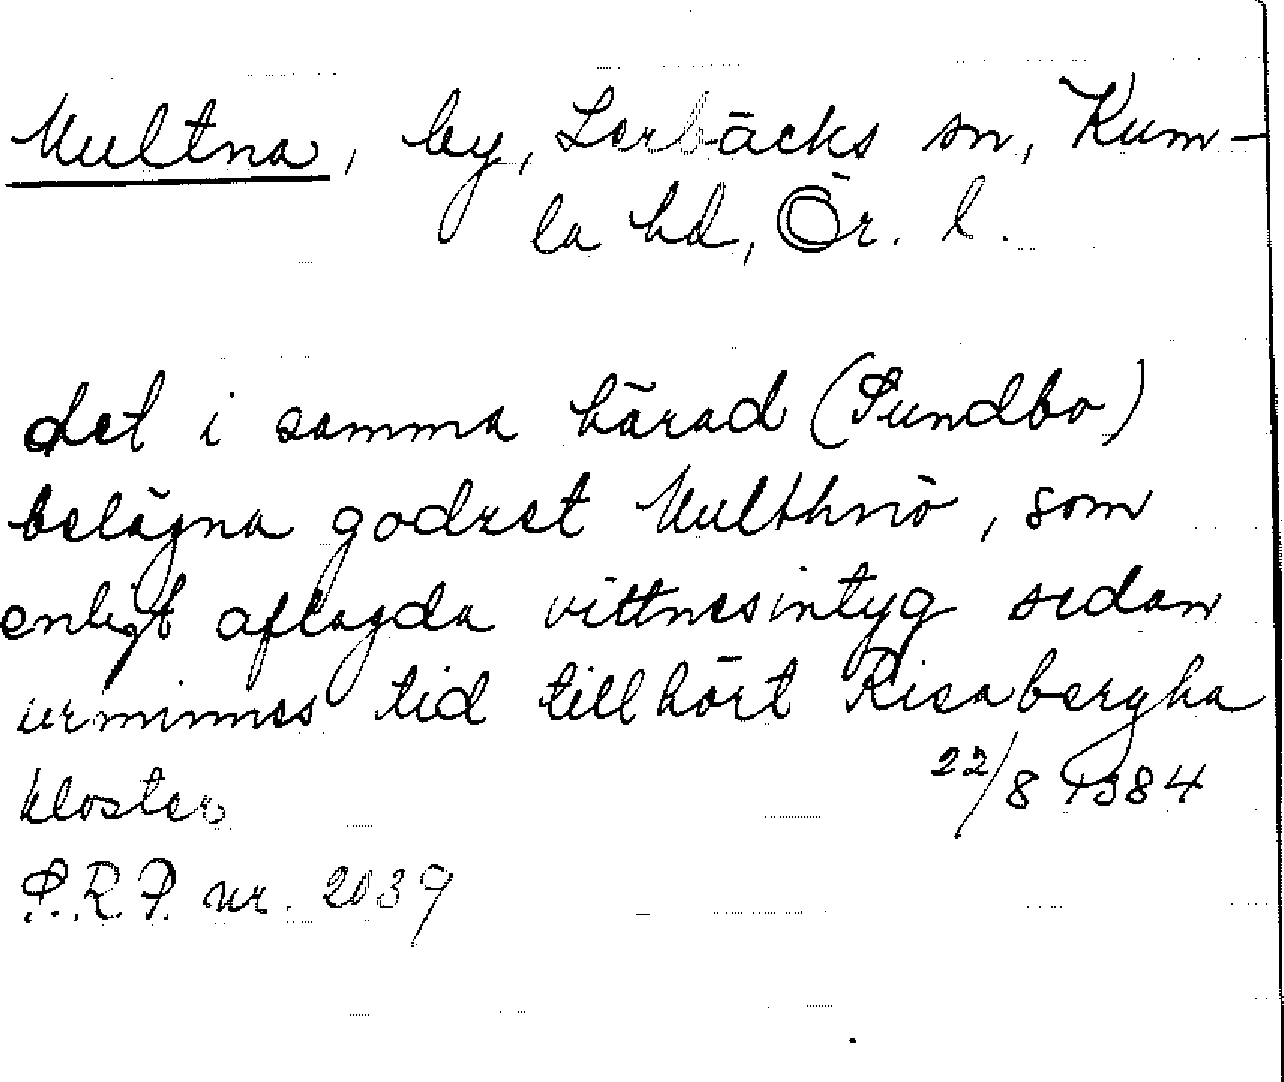 Multna, by, Lerbäcks sn, Kum-
la hd, Ör. l.
det i samma härad (Sundbo)
belägna godset Multhnö, som
enligt aflagda vittnesintyg sedan
urminnes tid tillhört Risabergha
kloster 22/8 1384
S.R.P. nr. 2039